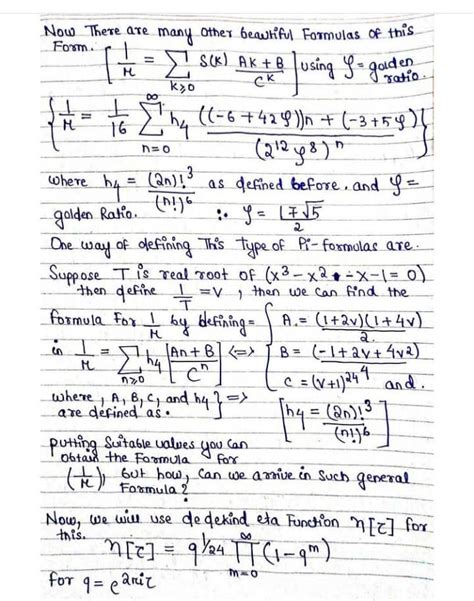 Now There are many other beautiful Formulas of this
Form. [1/π = Σ_{k≥0} S(k) (Ak+B)/C^k] using φ = golden ratio.
{1/π = 1/16 Σ_{n=0}^{∞} h₄ ((-6+42φ))n + (-3+5φ) / (2^12 φ^8)^n}
where h₄ = (2n)!³/(n!)⁶ as defined before. and φ =
golden Ratio. ∴ φ = (1+√5)/2
One way of defining This type of Pi-formulas are.
Suppose T is real root of (x³-x²-x-1=0)
then define 1/T = v, then we can find the
formula For 1/π by defining= { A = (1+2v)(1+4v)/2.
in 1/π = Σ_{n≥0} h₄ [An+B / C^n] <=> B = (-1+2v+4v2)
C = (v+1)^24 4 and.
where, A, B, C, and h4 } => [h4 = (2n)!³/(n!)⁶]
are defined as.
putting Suitable values you can
obtain the Formula for
(1/π) but how, can we arrive in Such general
Formula?
Now, we will use dedekind eta Function η[τ] for
this.
η[τ] = q^1/24 ∏_{m=0}^{∞} (1-q^m)
for q = e^2πiτ